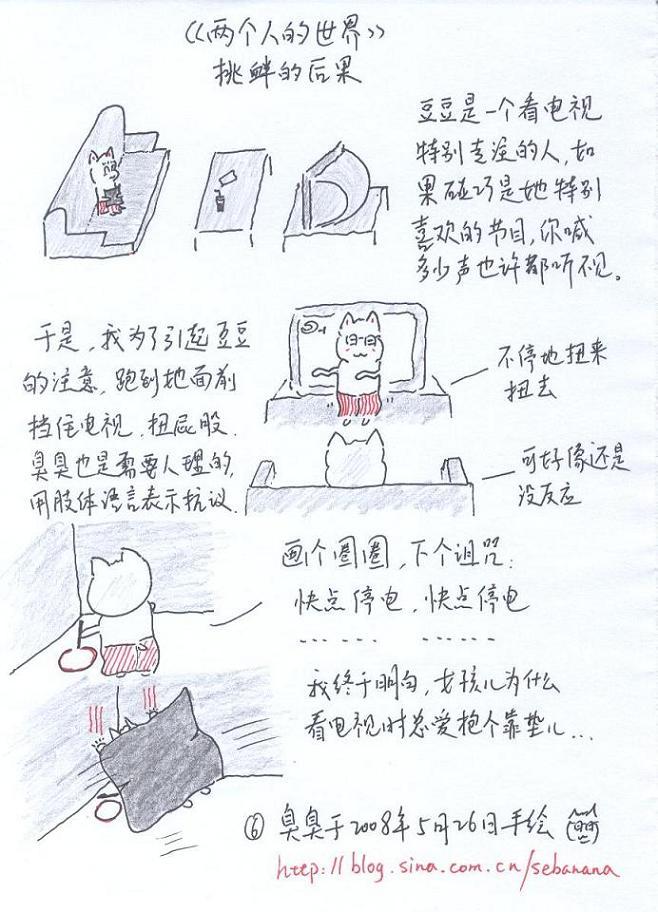 《两个人的世界》
挑衅的后果
豆豆是一个看电视
特别专注的人,如
果碰巧是她特别
喜欢的节目,你喊
多少声也许都听不见。
于是,我为了引起豆豆
的注意,跑到她面前
挡住电视,扭屁股.
臭臭也是需要人理的,
用肢体语言表示抗议.
不停地扭来
扭去
可好像还是
没反应
画个圈圈,下个诅咒:
快点停电,快点停电
…… ……
我终于明白,女孩儿为什么
看电视时总爱抱个靠垫儿…
⑥ 臭臭于2008年5月26日手绘
http://blog.sina.com.cn/sebanana